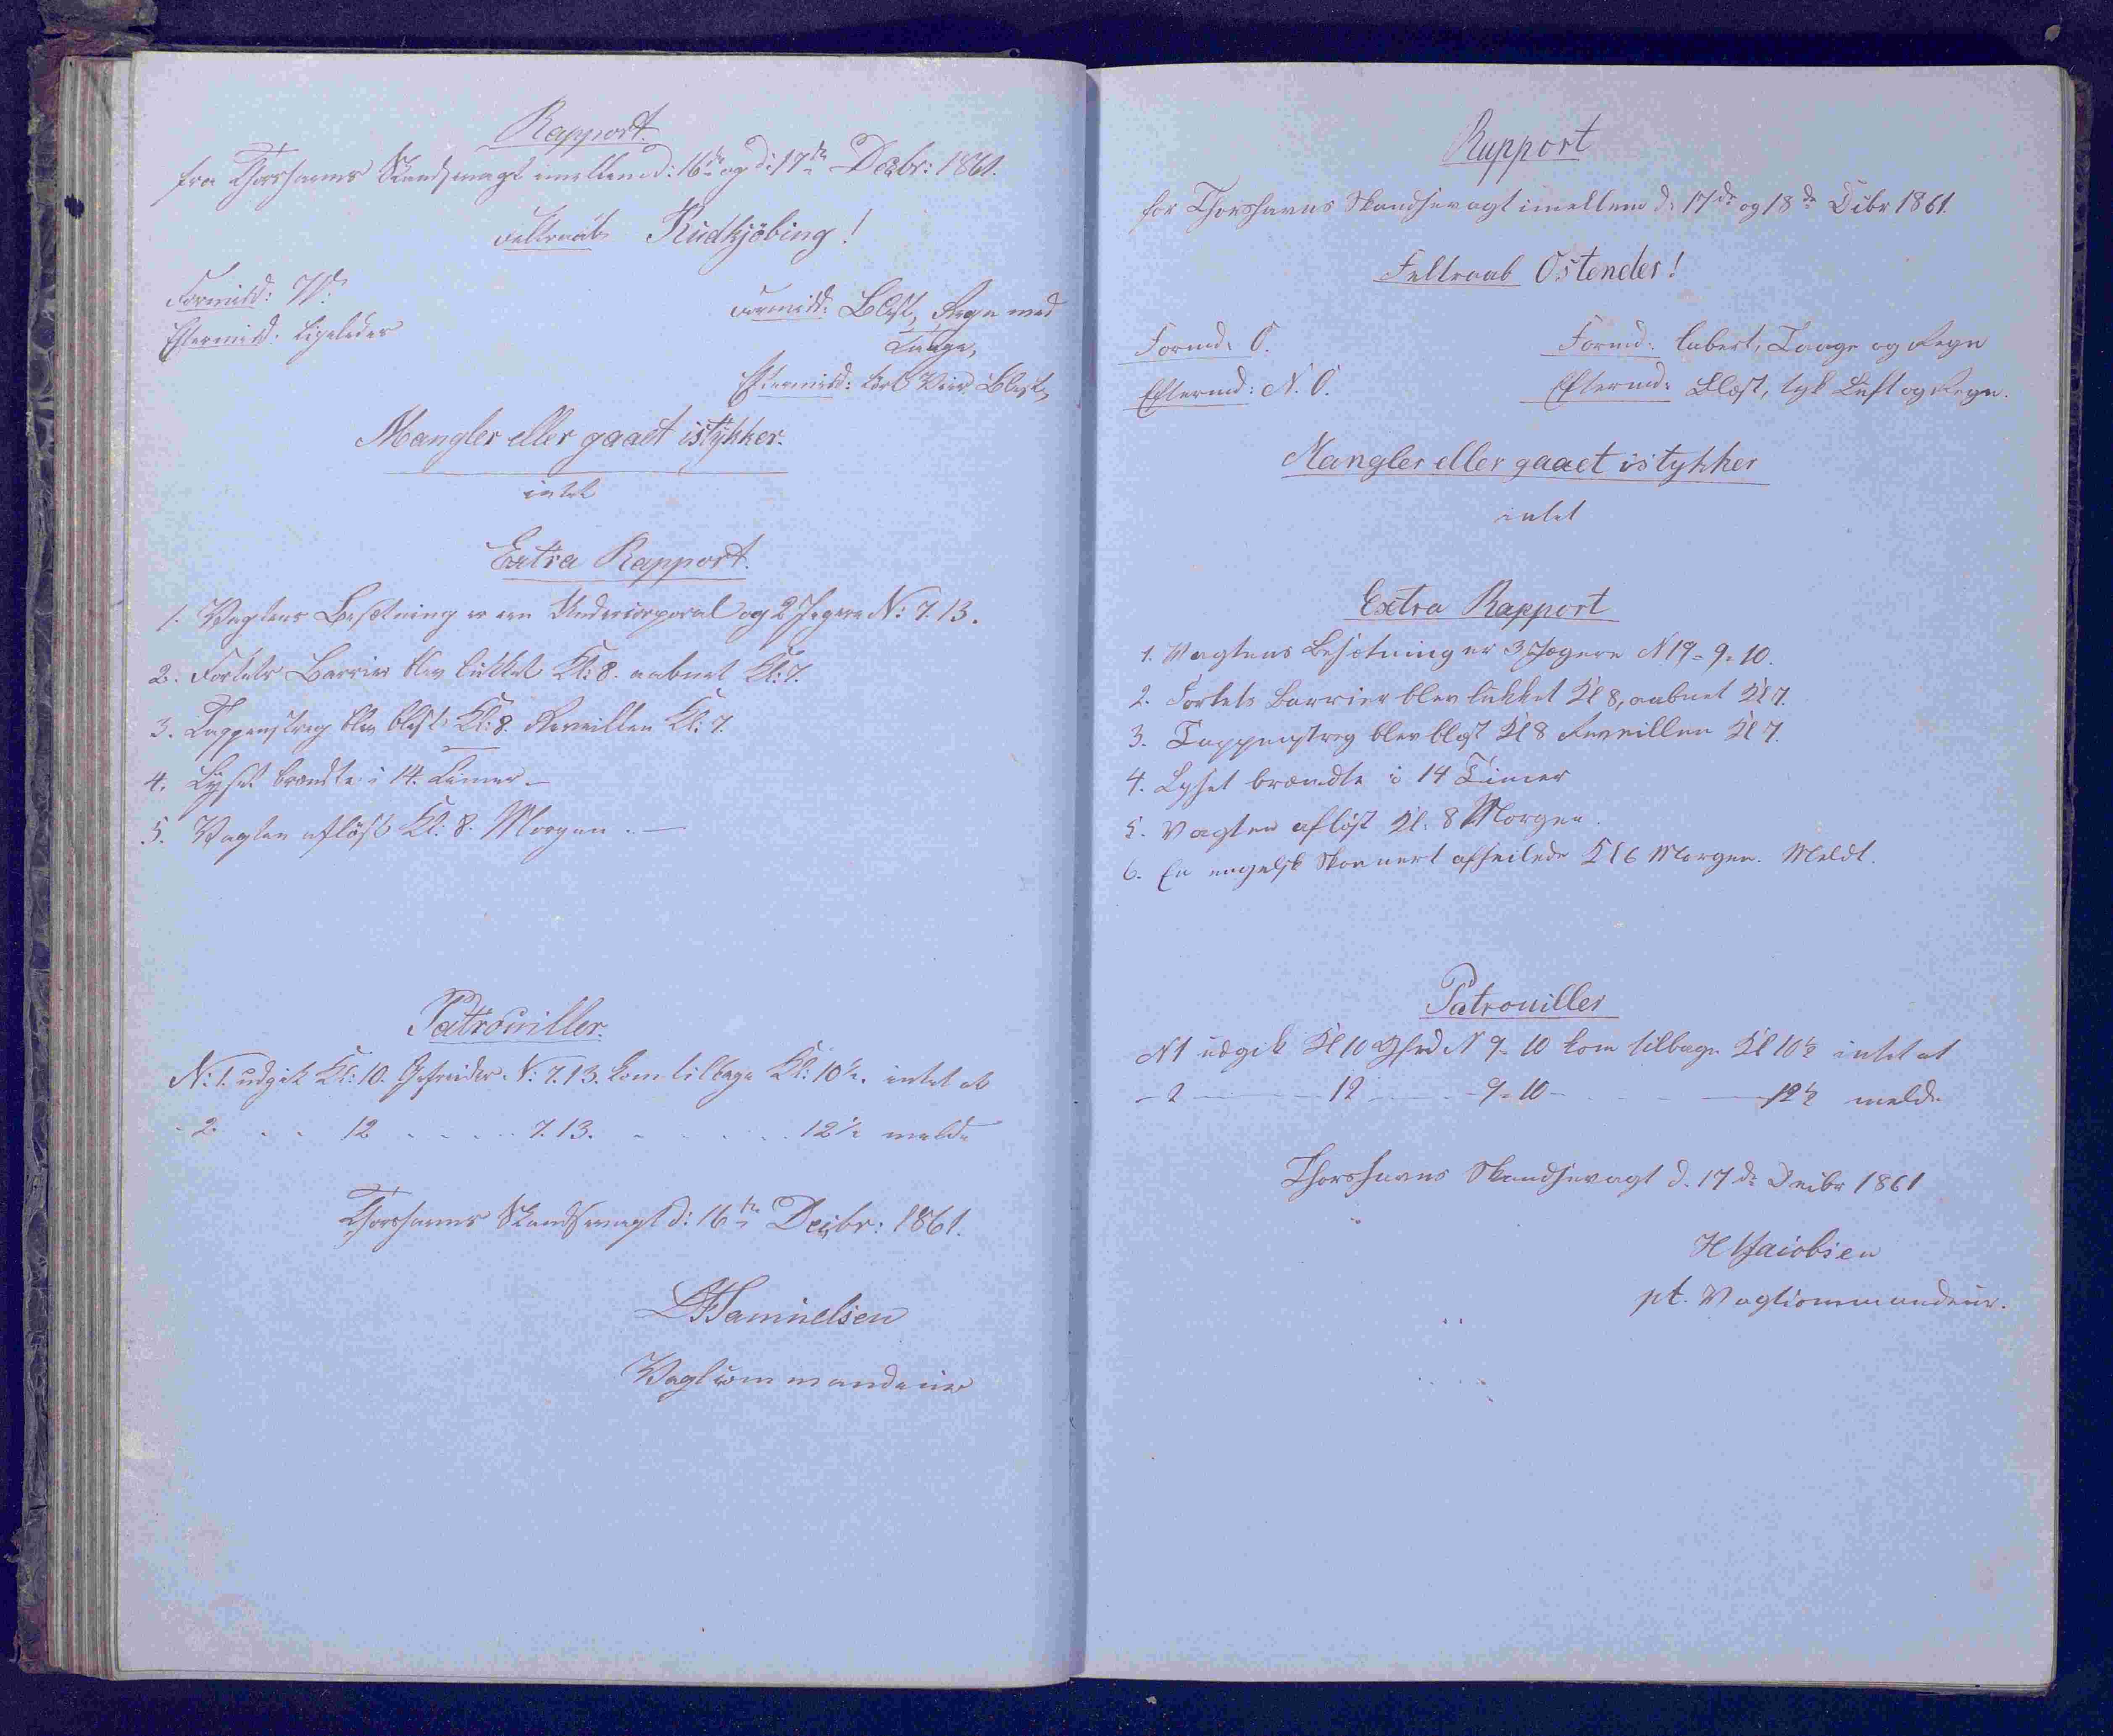 Rapport.
fra Thorshavns Skandsevagt imellem d: 16de og d: 17de Decbr: 1861.
Feltraab Rudkjöbing!
Formidd: W:
Formidd: Blæst, Regn med
Eftermidd: ligeledes
Taage,
Eftermidd: tört Veir Blæst,
Mangler eller gaaet istykker.
intet
Extra Rapport.
1. Vagtens Besætning er en Undercorporal og 2 Jægere N: 7. 13.
2. Fortets Barrier blev lukket Kl: 8. aabnet Kl: 7.
3. Tappenstreg blev blæst Kl: 8. Reveillen Kl: 7.
4. Lyset brændte i 14. Timer. —
5. Vagten aflöst Kl: 8. Morgen. . —
Patrouiller.
N: 1. udgik Kl: 10. Gefreider N: 7. 13. kom tilbage Kl: 10½. intet at
- 2 . . 12 . . . . . 7. 13. . . . . . . 12½ melde
Thorshavns Skandsevagt d: 16de Decbr: 1861.
Samuelsen
Vagtcommandeur
Rapport
for Thorshavns Skandsevagt imellem d: 17de og 18de Decbr 1861.
Feltraab Ostender!
Formd: O.
Formd: Taage og Regn
Eftermd: N. O.
Eftermd: Blæst, tyk Luft og Regn.
Mangler eller gaaet istykker
intet
Extra Rapport
1. Vagtens Besætning er 3 Jægere N 19 = 9 = 10.
2. Fortets Barrier blev lukket Kl 8, aabnet Kl 7.
3. Tappenstreg blev blæst Kl 8 Reveillen Kl 7.
4. Lyset brændte i 14 Timer
5. Vagten aflöst Kl. 8 Morgen.
6. En engelsk Skonnert afseilede Kl 6 Morgen. Meldt.
Patrouiller
N 1 udgik Kl 10 Gfrd N 9 - 10 kom tilbage Kl 10½ intet at
— 2 — 12 — 9 = 10 — 12½ melde
Thorshavns Skandsevagt d. 17de Decbr 1861
H Jacobsen
pt. Vagtcommandeur.